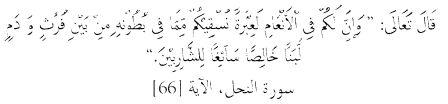 قَالَ تَعَالَى: " وَإِنَّ لَكُمْ فِي الْأَنْعَامِ لَعِبْرَةً نُسْقِيكُمْ مِمَّا فِي بُطُونِهِ مِنْ بَيْنِ فَرْثٍ وَ دَمٍ
لَبَنًا خَالِصًا سَائِغًا لِلشَّارِبِيْنَ."
سورة النحل، الآية [66]